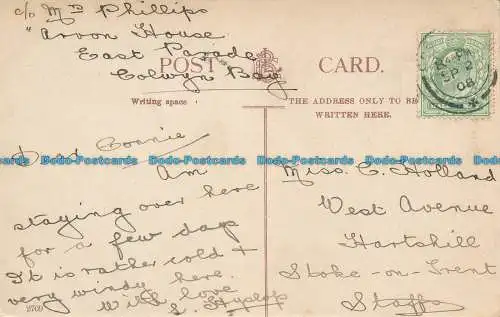 c/o Mrs Phillips
"Arvon House
East Parade
Colwyn Bay
POST CARD.
Writing space
THE ADDRESS ONLY TO BE
WRITTEN HERE.
SP 2
08
Dear Connie
Am
staying over here
for a few days
It is rather cold &
very windy here.
With love
S. Hyslop
Miss. C. Holland
West Avenue
Hartshill
Stoke-on-Trent
Staffs
2709
Dodo-Postcards Dodo-Postcards Dodo-Postcards Dodo-Postcards Dodo-Postcards